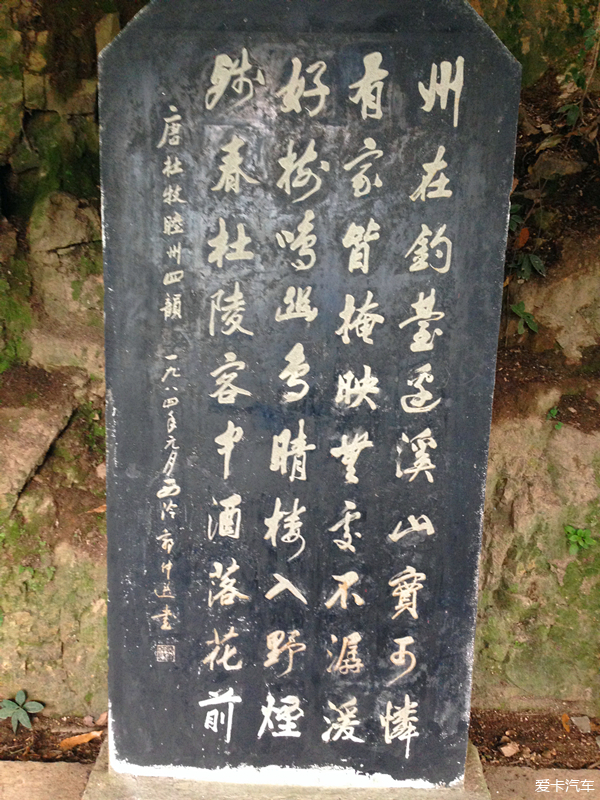 州在釣臺邊溪山實可憐
有家皆掩映無處不潺湲
好樹鳴幽鳥晴樓入野煙
殘春杜陵客中酒落花前
唐杜牧睦州四韻 一九八四年元月西泠郭仲選書
爱卡汽车